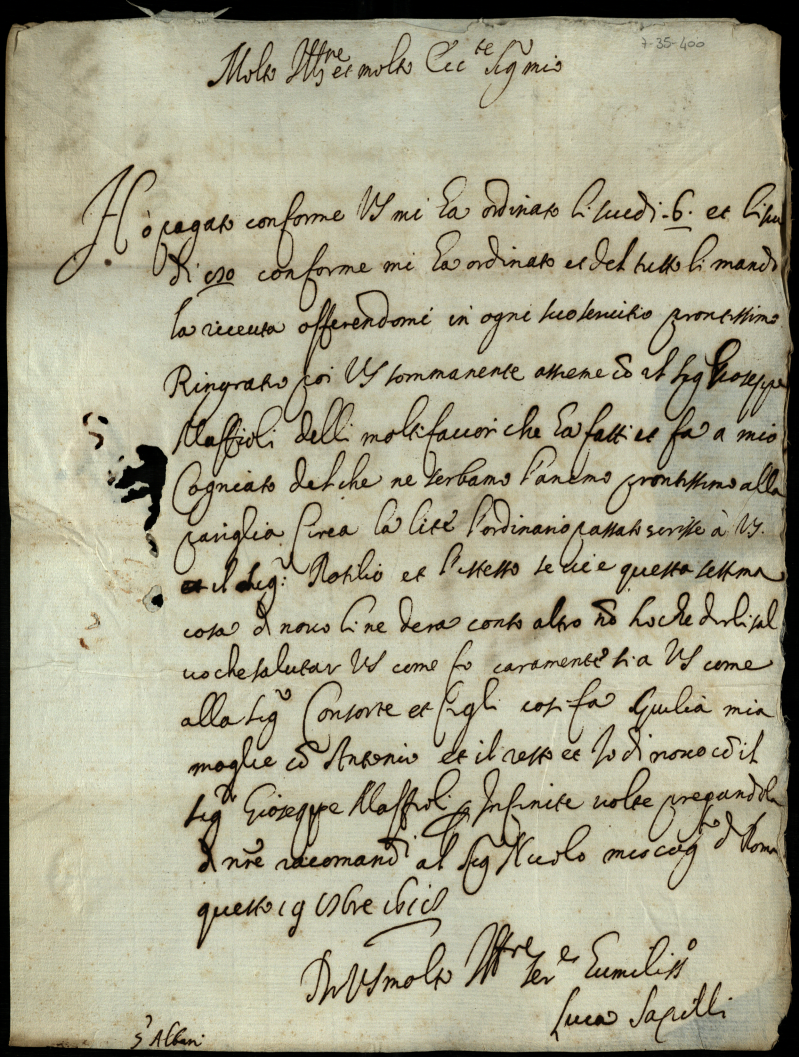 7-35-400
Molto Ill.re et molto Ecc.te Sig.r mio
Hò pagato conforme VS mi ha ordinato li scudi - 6 - et li scu
di conforme mi ha ordinato et del tutto li mando
la riceuta offerendomi in ogni suo servitio prontissimo
Ringratio poi VS sommamente assieme cō al Sig Gioseppe
Maffioli delli molti favori che ha fatti et fa a mio
Cogniato del che ne serbamo l'animo prontissimo alla
pariglia Circa la lite l'ordinario passato scrisse à VS.
et il Sig.r Rotilio et l'istesso se ci è questa settima
cosa di novo li ne dera conto altro nō ho che dirli sal
vo che salutar VS come fo caramente sia VS come
alla Sig.ra Consorte et figli cosi fa Giulia mia
moglie cō Antonio et il resto et Io di novo cō il
Sig.r Gioseppe Maffioli Infinite volte pregandola
di nr̄e racomand.i al Sig Nicolo mio cog.to di Roma
questo 19
Di VS molto Ill.re ser.e humiliss.o
Luca Sapilli
S.r Albani